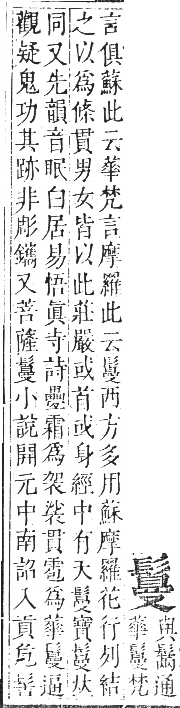 鬘與鬗通
華鬘梵
言俱蘇此云華梵言摩羅此云鬘西方多用蘇摩羅花行列結
之以爲條貫男女皆以此莊嚴或首或身經中有天鬘寶鬘
同又先韻音眠白居易悟眞寺詩疊霜爲袈裟貫雹爲華鬘逼
觀疑鬼功其跡非彫鐫又菩薩鬘小說開元中南詔入貢危髻